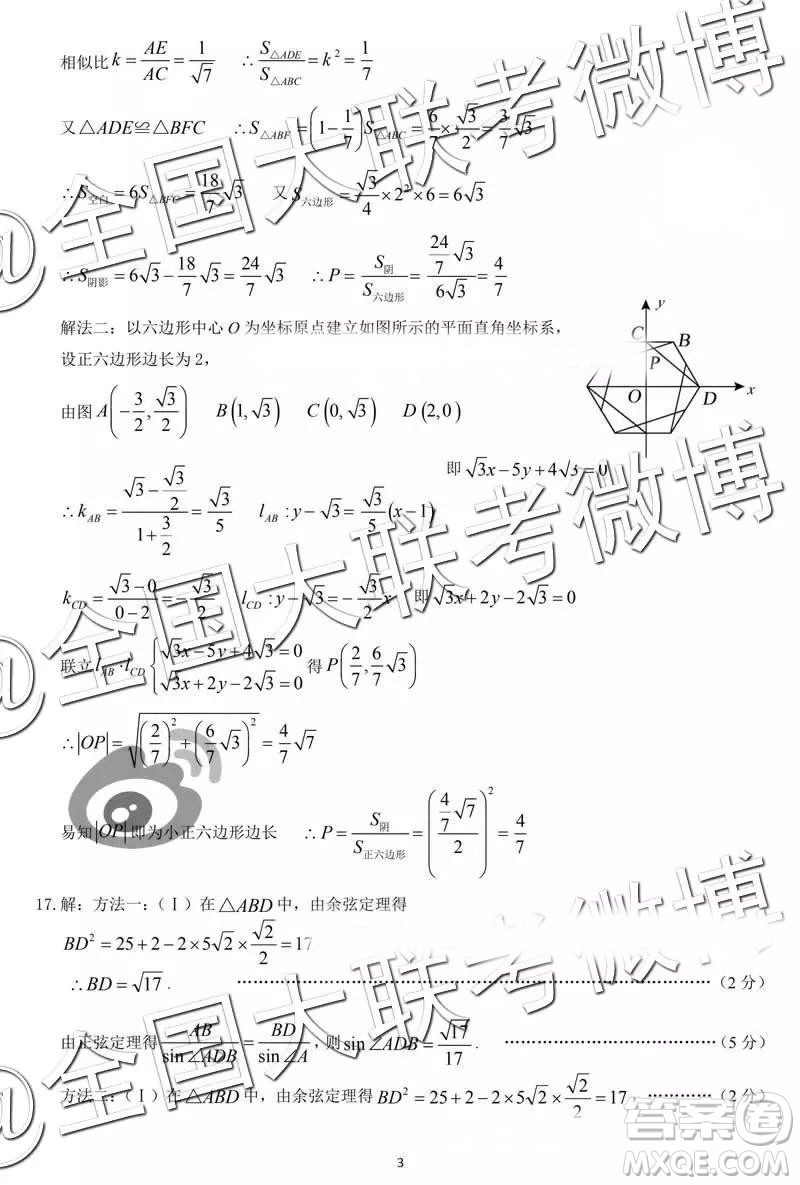 相似比 k = AE/AC = 1/√7  ∴ S△ADE/S△ABC = k² = 1/7
又△ADE≌△BFC  ∴ S△ABF = (1 - 1/7)S△ABC = 6/7 × √3/2 = 3/7 √3
∴ S空白 = 6S△BFC = 18/7 √3  又 S六边形 = √3/4 × 2² × 6 = 6√3
∴ S阴影 = 6√3 - 18/7 √3 = 24/7 √3  ∴ P = S阴/S六边形 = (24/7 √3)/(6√3) = 4/7
解法二：以六边形中心 O 为坐标原点建立如图所示的平面直角坐标系，
设正六边形边长为 2，
由图 A(-3/2, √3/2)  B(1, √3)  C(0, √3)  D(2,0)
y
C
B
P
O
D
x
即 √3x - 5y + 4√3 = 0
∴ kAB = (√3 - √3/2)/(1 + 3/2) = √3/5  lAB : y - √3 = √3/5 (x - 1)
kCD = (√3 - 0)/(0 - 2) = -√3/2  lCD : y - √3 = -√3/2 x  即 √3x + 2y - 2√3 = 0
联立 lAB · lCD { √3x - 5y + 4√3 = 0
√3x + 2y - 2√3 = 0 得 P(2/7, 6/7 √3)
∴ |OP| = √((2/7)² + (6/7 √3)²) = 4/7 √7
易知|OP|即为小正六边形边长  ∴ P = S阴/S正六边形 = ((4/7 √7)/2)² = 4/7
17.解：方法一：（Ⅰ）在 △ABD 中，由余弦定理得
BD² = 25 + 2 - 2 × 5√2 × √2/2 = 17
∴ BD = √17 . ……………………………………（2 分）
由正弦定理得 AB/sin∠ADB = BD/sin∠A，则 sin∠ADB = √17/17 . ………………（5 分）
方法二：（Ⅰ）在 △ABD 中，由余弦定理得 BD² = 25 + 2 - 2 × 5√2 × √2/2 = 17 . …………（2 分）
3
@全国大联考微博
@全国大联考微博
@全国大联考微博
答案圈
MXQE.COM